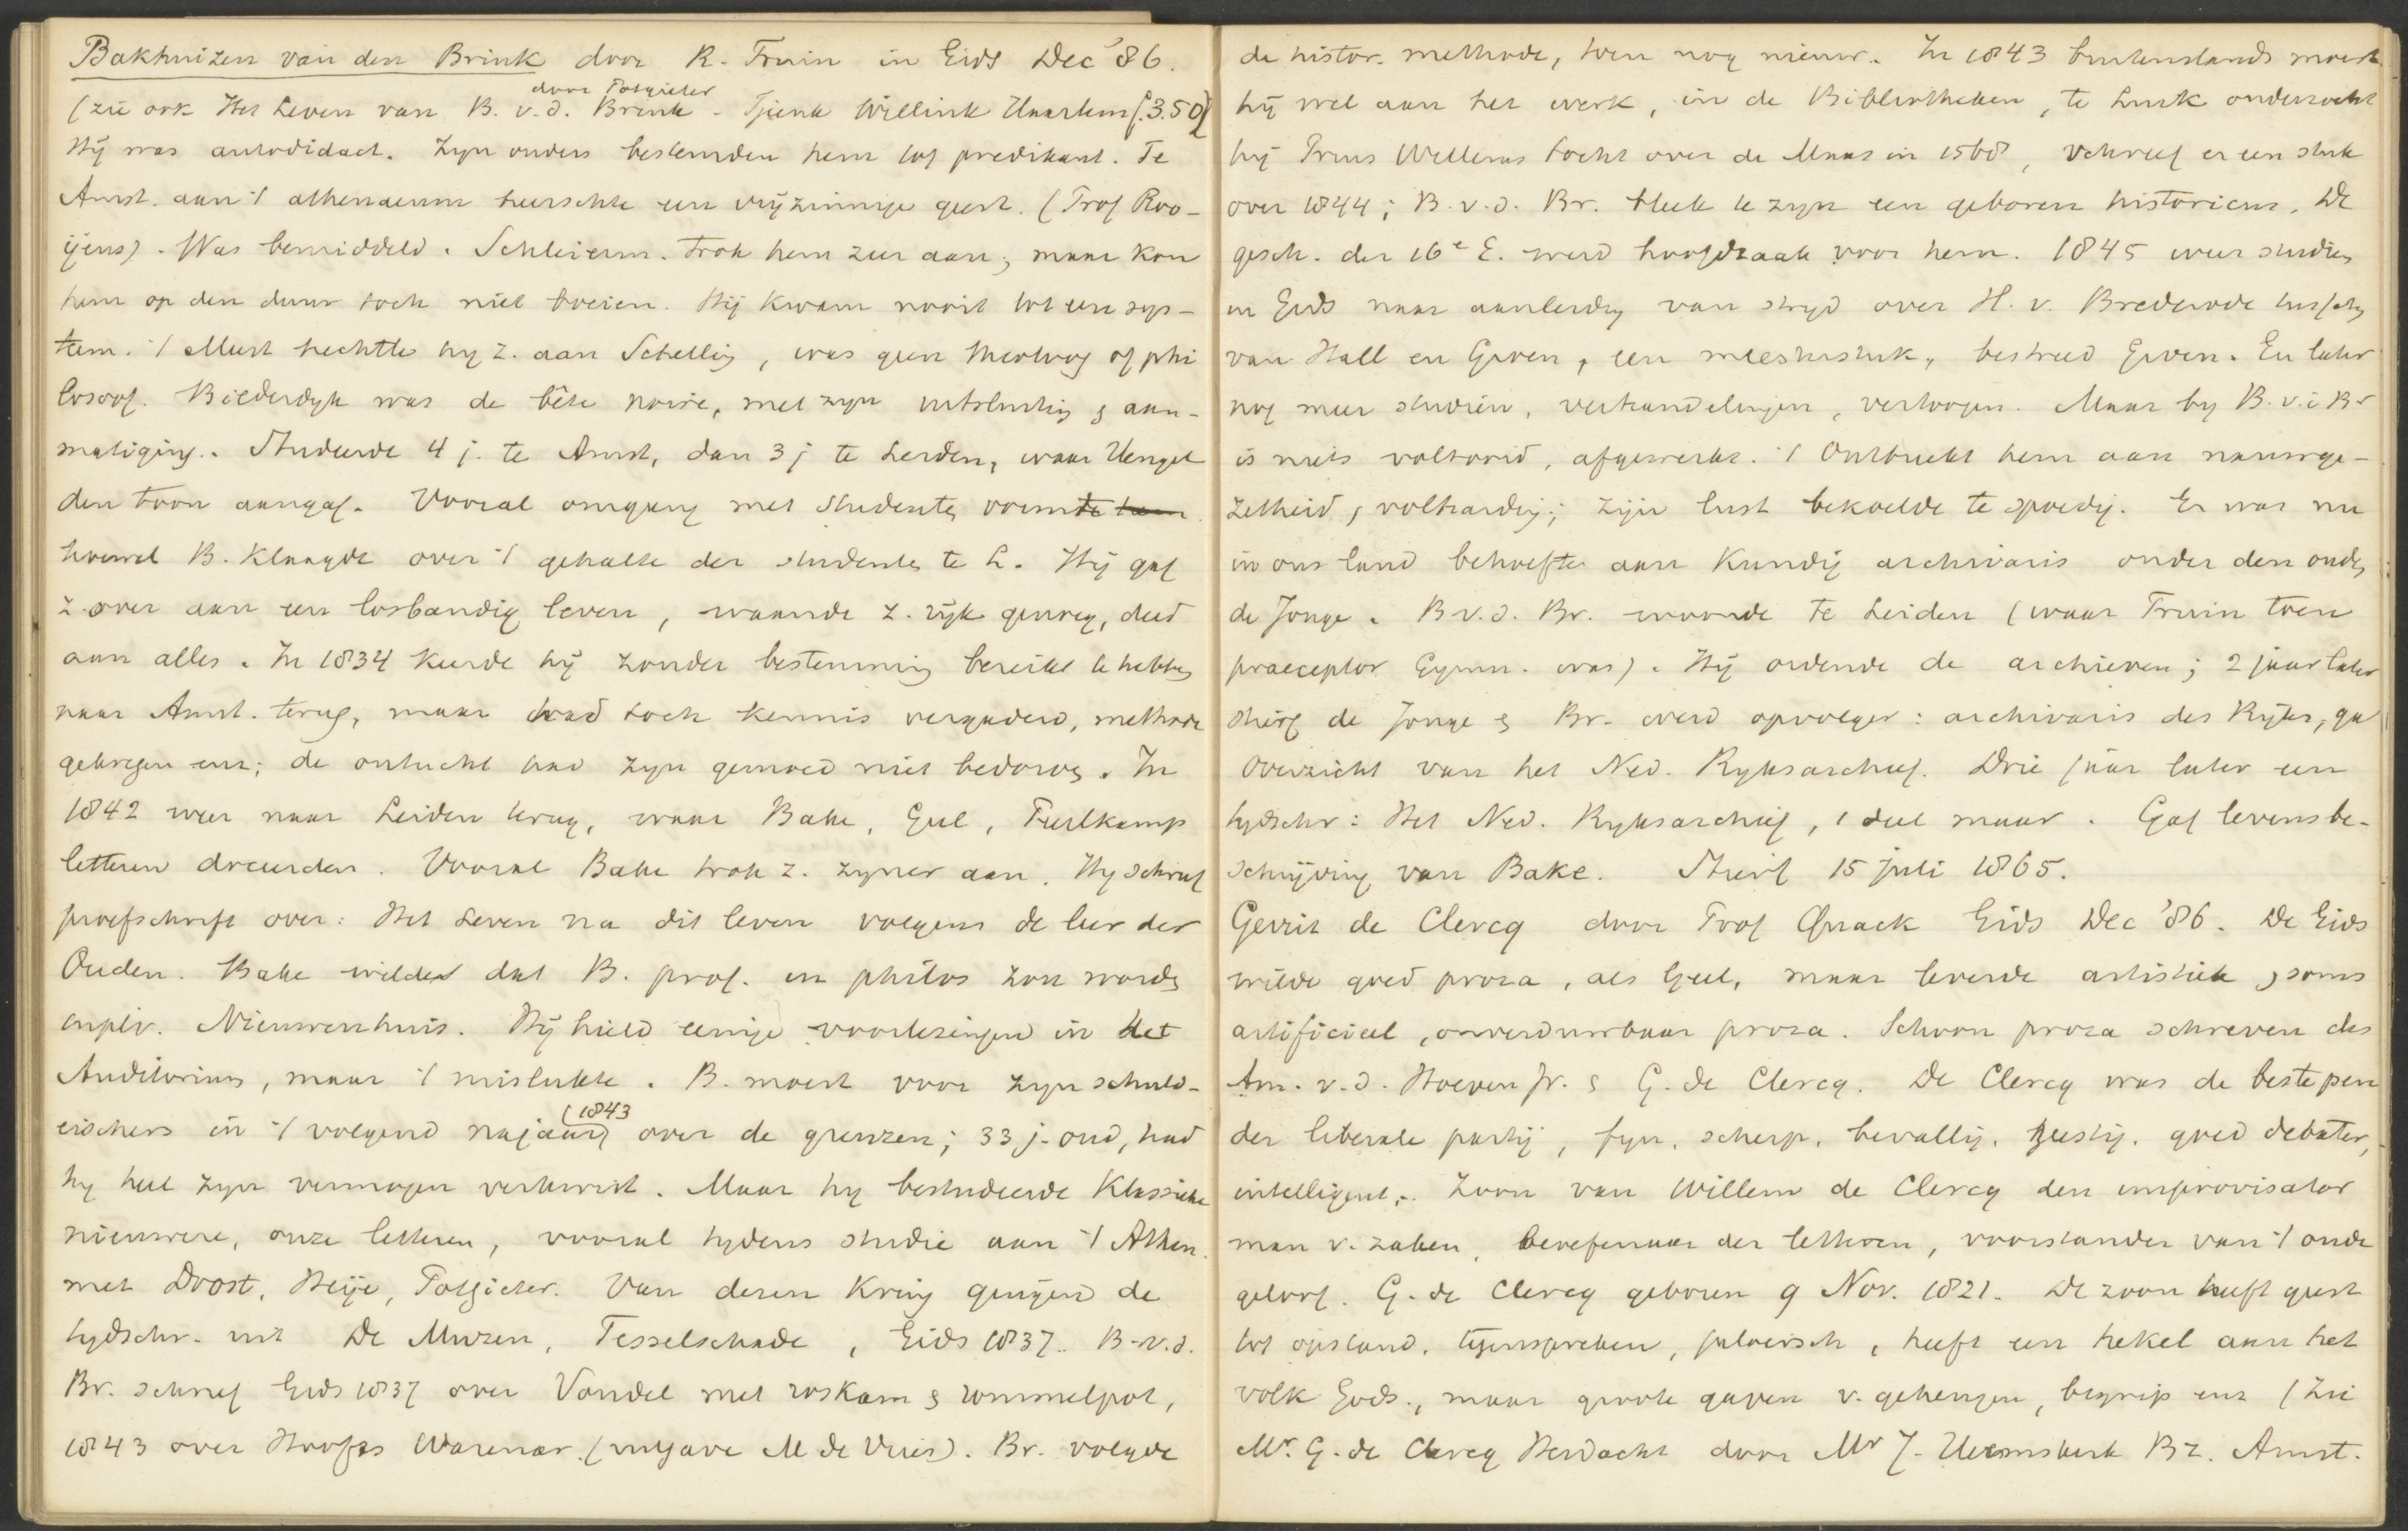 Bakhuizen van den Brink door R. Fruin in Gids Dec '86.
door Potgieter
(zie ook Het Leven van B. v. d. Brink - Tjeenk Willink Haarlem f. 3.50)
Hij was autodidact. Zyn ouders bestemden hem tot predikant. Te
Amst. aan 't athenaeum heerschte een vrijzinnige geest. (Prof Roo-
ijens). Was bemiddeld. Schleierm. trok hem zeer aan, maar kon
hem op den duur toch niet boeien. Hij kwam nooit tot een sys-
teem. 't Meest hechtte hy z. aan Schelling, was geen theoloog of phi
losoof. Bilderdyk was de bête noire, met zyn uitsluiting & aan-
matiging. Studeerde 4 j. te Amst, dan 3 j te Leiden, waar Hengel
den toon aangaf. Vooral omgang met studenten vormde
hoewel B. klaagde over 't gehalte der studenten te L. Hij gaf
z. over aan een losbandig leven, waande z. rijk genoeg, deed
aan alles. In 1834 keerde hij zonder bestemming bereikt te hebben
naar Amst. terug, maar had toch kennis vergaderd, methode
gekregen enz; de ontucht had zyn gemoed niet bedorven. In
1842 weer naar Leiden terug, waar Bake, Geel, Peerlkamp
letteren doceerden. Vooral Bake trok z. zyner aan. Hy schreef
proefschrift over: Het Leven na dit leven volgens de leer der
Ouden. Bake wilde dat B. prof. in philos zou worden
in plv. Nieuwenhuis. Hij hield eenige voorlezingen in het
Auditorium, maar 't mislukte. B. moest voor zyn schuld-
(1843
eischers in 't volgend najaar) over de grenzen; 33 j. oud, had
hy heel zyn vermogen verkwist. Maar hy bestudeerde klassieke
nieuwere, onze letteren, vooral tydens studie aan 't Athen.
met Drost, Heije, Potgieter. Van dezen kring gingen de
tydschr. uit De Muzen, Tesselschade, Gids 1837. B. v. d.
Br. schreef Gids 1837 over Vondel met roskam & rommelpot,
1843 over Hoofts Warenar (uitgave M de Vries). Br. volgde
de histor. methode, toen nog nieuw. In 1843 buitenslands moest
hij wel aan het werk, in de Bibliotheken, te Luik onderzocht
hij Prins Willems tocht over de Maas in 1568, schreef er een stuk
over 1844; B. v. d. Br. bleek te zyn een geboren historicus. De
gesch. der 16e E. werd hoofdzaak voor hem. 1845 weer studien
in Gids naar aanleiding van stryd over H. v. Brederode tusschen
van Hall en Groen, een meesterstuk, bestreed Groen. En later
nog meer studiën, verhandelingen, vertoogen. Maar by B. v. d. Br
is niets voltooid, afgewerkt. 't Ontbreekt hem aan nauwge-
zetheid, volharding; zijn lust bekoelde te spoedig. Er was nu
in ons land behoefte aan kundig archivaris onder den ouden
de Jonge. B v. d. Br. woonde te Leiden (waar Fruin toen
praeceptor Gymn. was). Hij ordende de archieven; 2 jaar later
stierf de Jonge & Br. werd opvolger: archivaris des Rijks, gaf
Overzicht van het Ned. Ryksarchief. Drie jaar later een
tydschr: Het Ned. Ryksarchief, 1 deel maar. Gaf levensbe-
schrijving van Bake. Stierf 15 juli 1865.
Gerrit de Clercq door Prof Quack Gids Dec '86. De Gids
wilde goed proza, als Geel, maar leverde artistiek, soms
artificieel, onverduurbaar proza. Schoon proza schreven des
Am. v. d. Hoeven Jr. & G. de Clercq. De Clercq was de beste pen
der liberale partij, fyn, scherp, bevallig, geestig. goed debater,
intelligent. Zoon van Willem de Clercq den improvisator
man v. zaken, beoefenaar der letteren, voorstander van 't oude
geloof. G. de Clercq geboren 9 Nov. 1821. De zoon heeft geest
tot opstand, tegenspreken, heeft een hekel aan het
volk Gods, maar groote gaven v. geheugen, begrip enz (Zie
Mr. G. de Clercq Herdacht door Mr J. Heemskerk Bz. Amst.